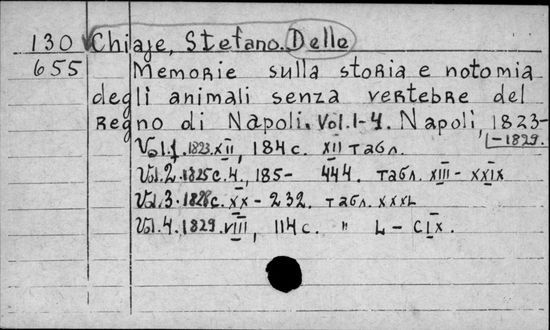 130 Chiaje, Stefano. Delle
655 Memorie sulla storia e notomia
degli animali senza vertebre del
Regno di Napoli. Vol.1-4. Napoli, 1823-
-1829.
Vol.1. 1823. XII, 184 c. XII табл.
Vol.2. 1825 c. 4., 185- 444. табл. XIII - XXIX
Vol.3. 1828 c. XX - 232. табл. XXXL
Vol.4. 1829. VIII, 114 c. " L - CIX.